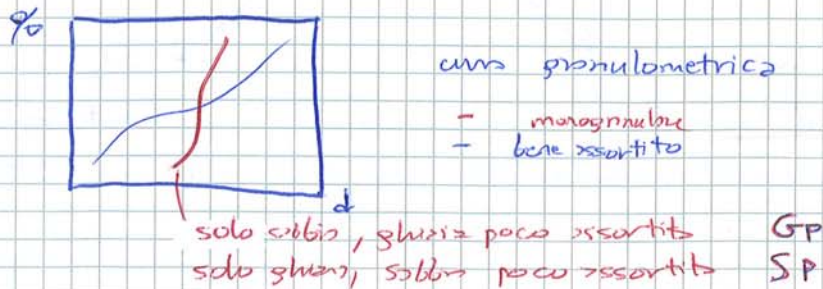 %
curva granulometrica
- monogranulare
- bene assortito
d
solo sabbia, ghiaia poco assortita GP
solo ghiaia, sabbia poco assortita SP